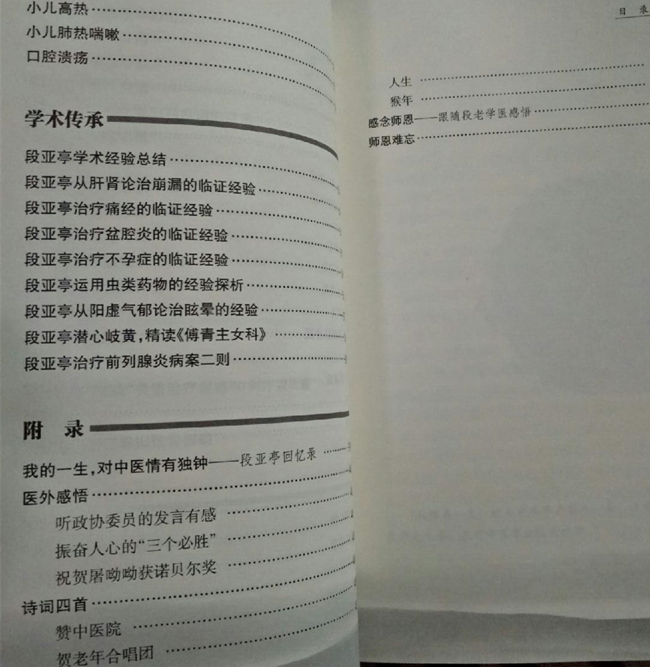 小儿高热
小儿肺热喘嗽
口腔溃疡
学术传承
段亚亭学术经验总结
段亚亭从肝肾论治崩漏的临证经验
段亚亭治疗痛经的临证经验
段亚亭治疗盆腔炎的临证经验
段亚亭治疗不孕症的临证经验
段亚亭运用虫类药物的经验探析
段亚亭从阳虚气郁论治眩晕的经验
段亚亭潜心岐黄,精读《傅青主女科》
段亚亭治疗前列腺炎病案二则
附 录
我的一生,对中医情有独钟——段亚亭回忆录
医外感悟
听政协委员的发言有感
振奋人心的“三个必胜”
祝贺屠呦呦获诺贝尔奖
诗词四首
赞中医院
贺老年合唱团
目 录
人生
猴年
感念师恩——跟随段老学医感悟
师恩难忘